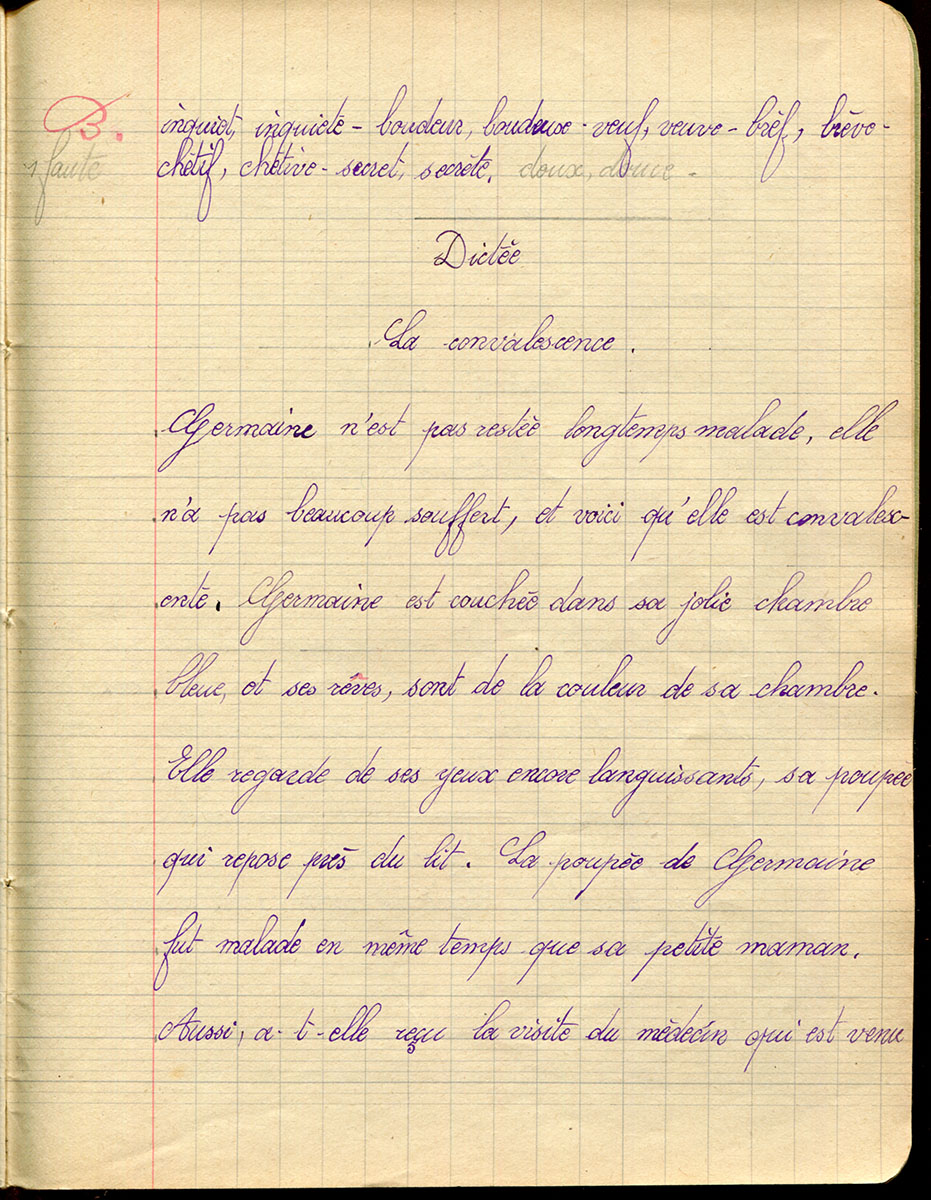 B.
inquiet, inquiète - boudeur, boudeuse - veuf, veuve - bref, brève -
1 faute
chétif, chétive - secret, secrète. doux, douce -
Dictée
La convalescence.
Germaine n'est pas restée longtemps malade, elle
n'a pas beaucoup souffert, et voici qu'elle est convalesc-
ente. Germaine est couchée dans sa jolie chambre
bleue, et ses rêves, sont de la couleur de sa chambre.
Elle regarde de ses yeux encore languissants, sa poupée
qui repose près du lit. La poupée de Germaine
fut malade en même temps que sa petite maman.
Aussi, a-t-elle reçu la visite du médecin qui est venu